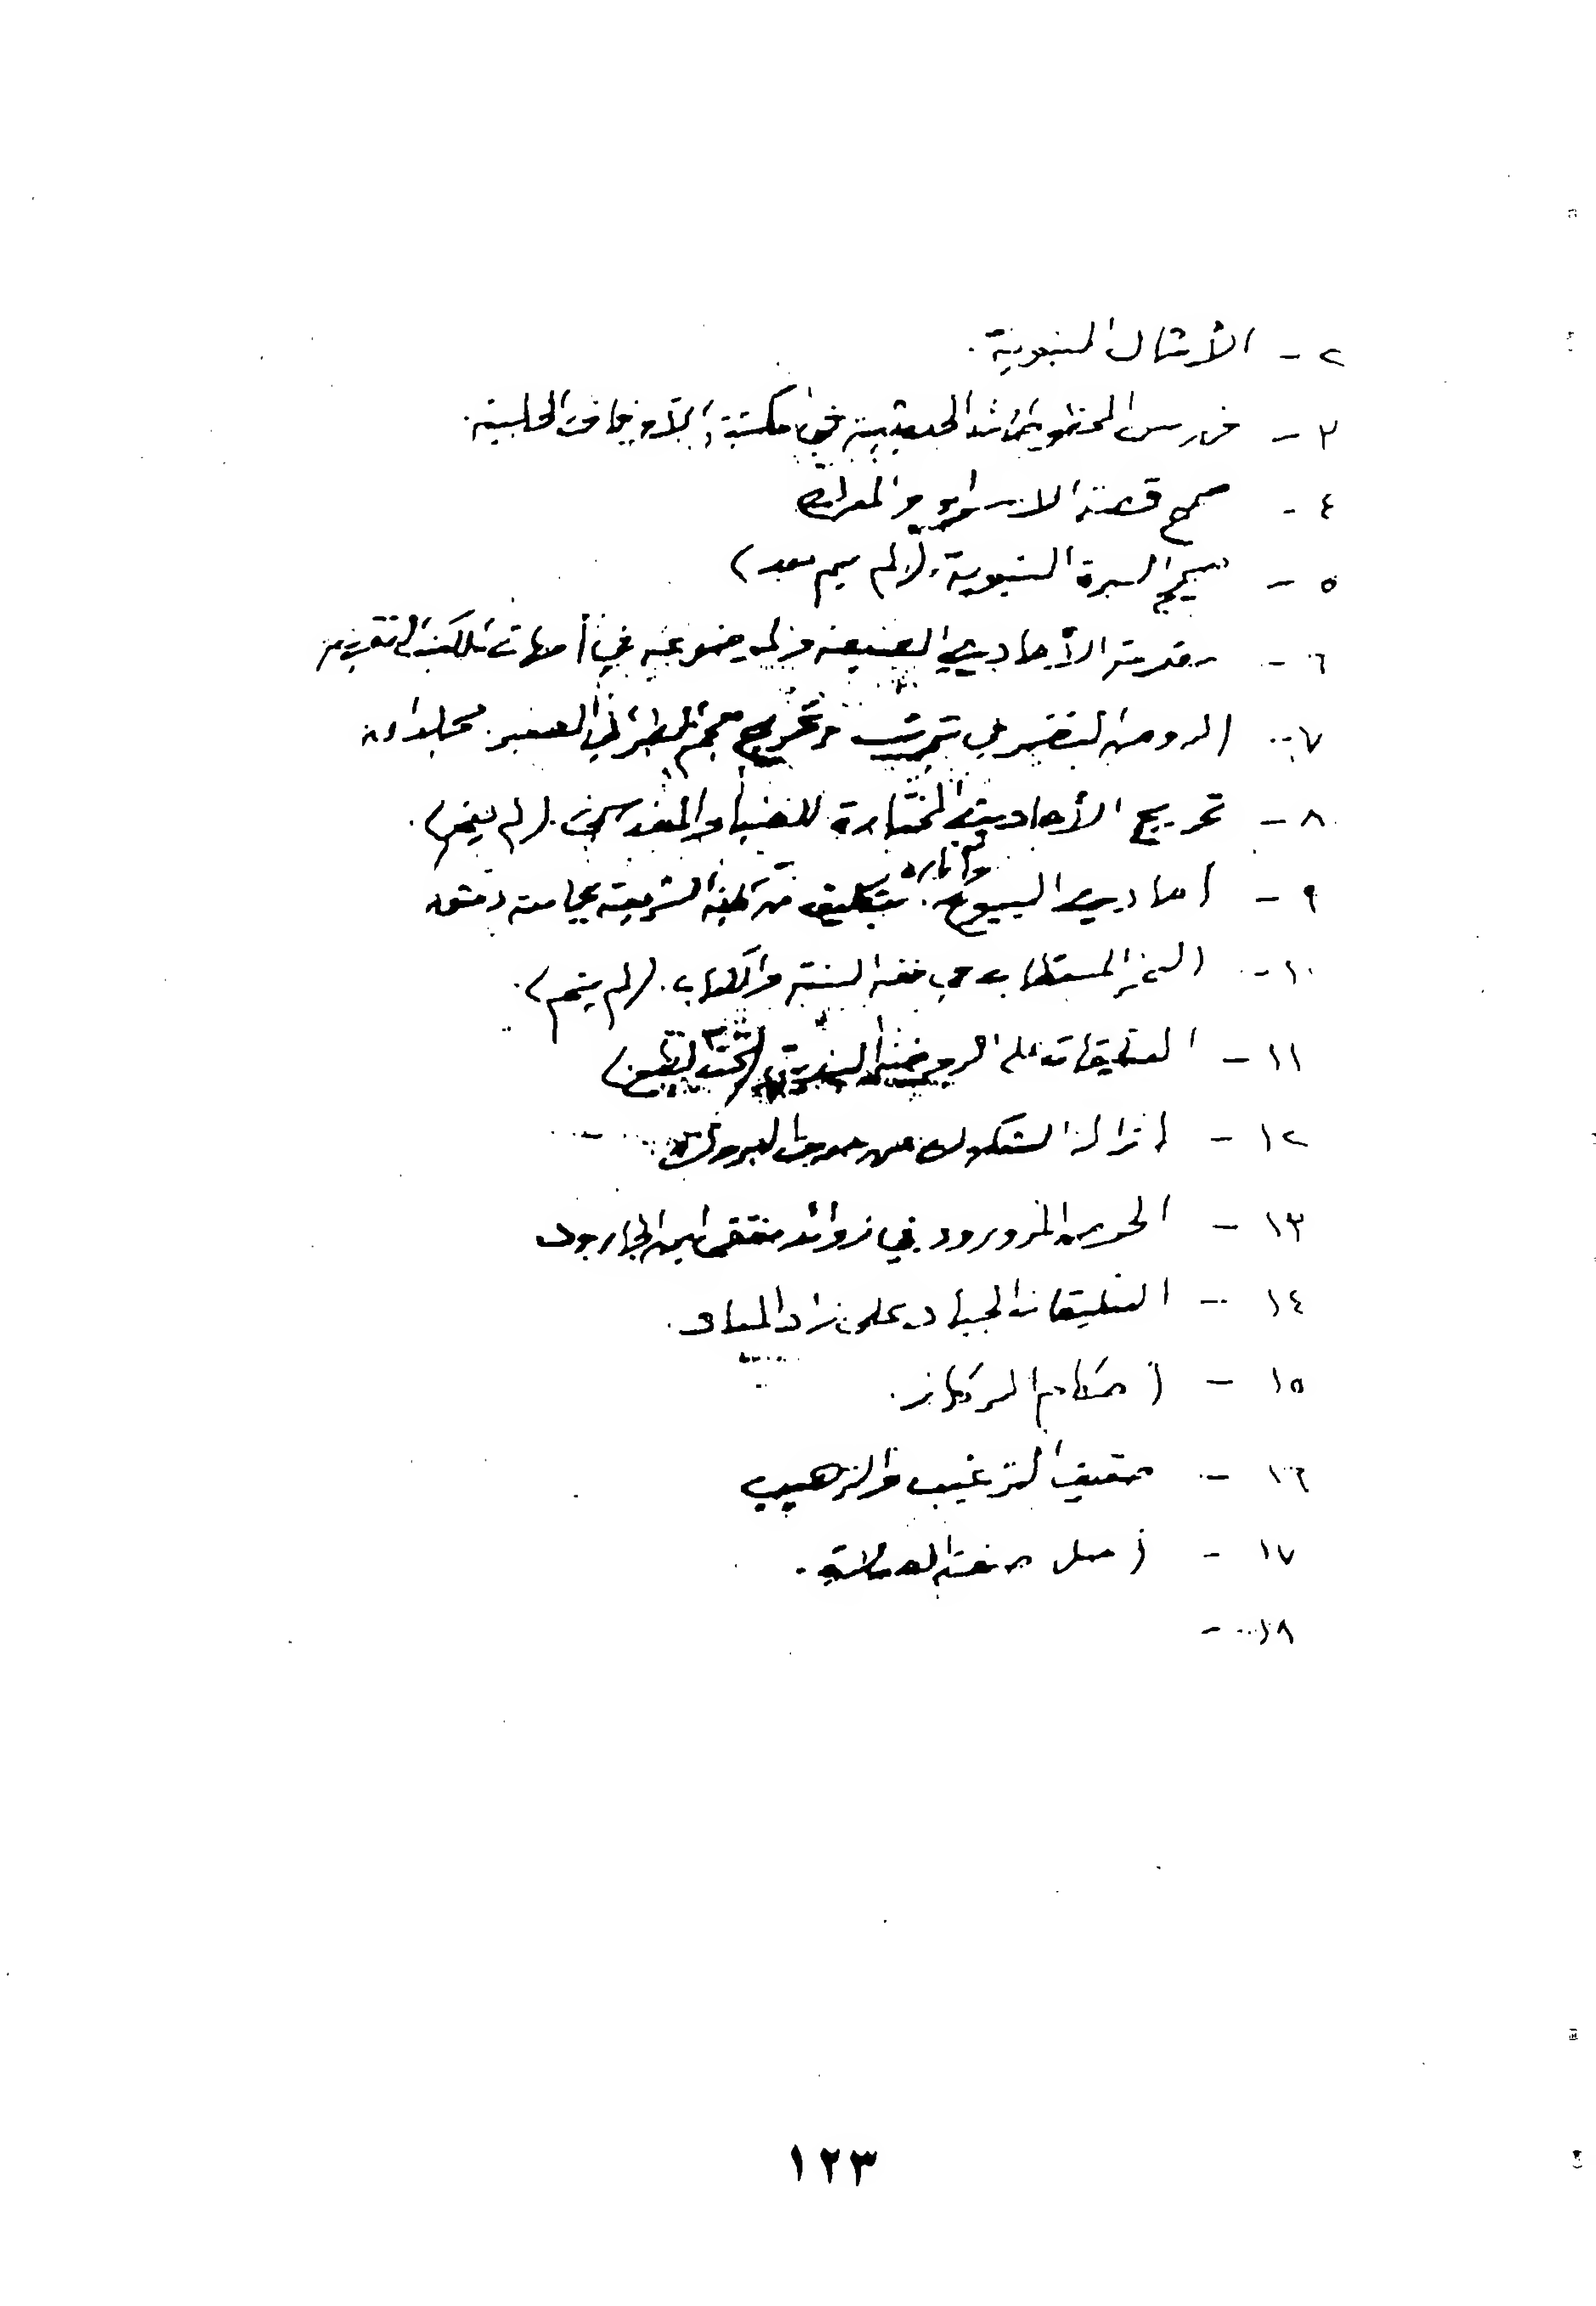 ٢ - الأمثال النبوية.
٣ - فهرس المخطوطات الحديثية في مكتبة الأوقاف الحلبية.
٤ - صحيح قصة الاسراء والمعراج
٥ - صحيح السيرة النبوية. (لم يتم بعد)
٦ - مقدمة الأحاديث الضعيفة والموضوعة في أمهات الكتب الفقهية
٧ - الروض النضير في ترتيب وتخريج معجم الطبراني الصغير. مجلدان
٨ - تخريج الأحاديث المختارة للضياء المقدسي. (لم يتم).
٩ - أحاديث البيوع وآثاره. بتكليف من لجنة الشريعة بجامعة دمشق
١٠ - الثمر المستطاب في فقه السنة والكتاب. (لم يتم).
١١ - التعليقات على الروضة الندية (تحت الطبع)
١٢ - إزالة الشكوك عن حديث البروك
١٣ - الحوض المورود في زوائد منتقى ابن الجارود
١٤ - التعليقات الجياد على زاد المعاد.
١٥ - أحكام الركاز.
١٦ - تحقيق الترغيب والترهيب
١٧ - أصل صفة الصلاة.
١٨ -
١٢٣